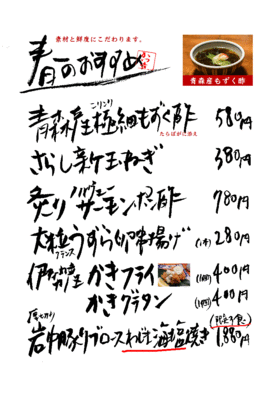 素材と鮮度にこだわります。
春のおすすめ
青森産もずく酢
青森産極細もずく酢 580円
コリコリ
たらばがに添え
さらし新玉ねぎ 380円
炙りノルウェーサーモンポン酢 780円
大粒うずら卵串揚げ (1本) 280円
フランス
かきフライ (1個) 400円
かきグラタン (1個) 400円
厚切り
(限定3食)
岩中豚リブロースわじま海塩焼き 1,880円